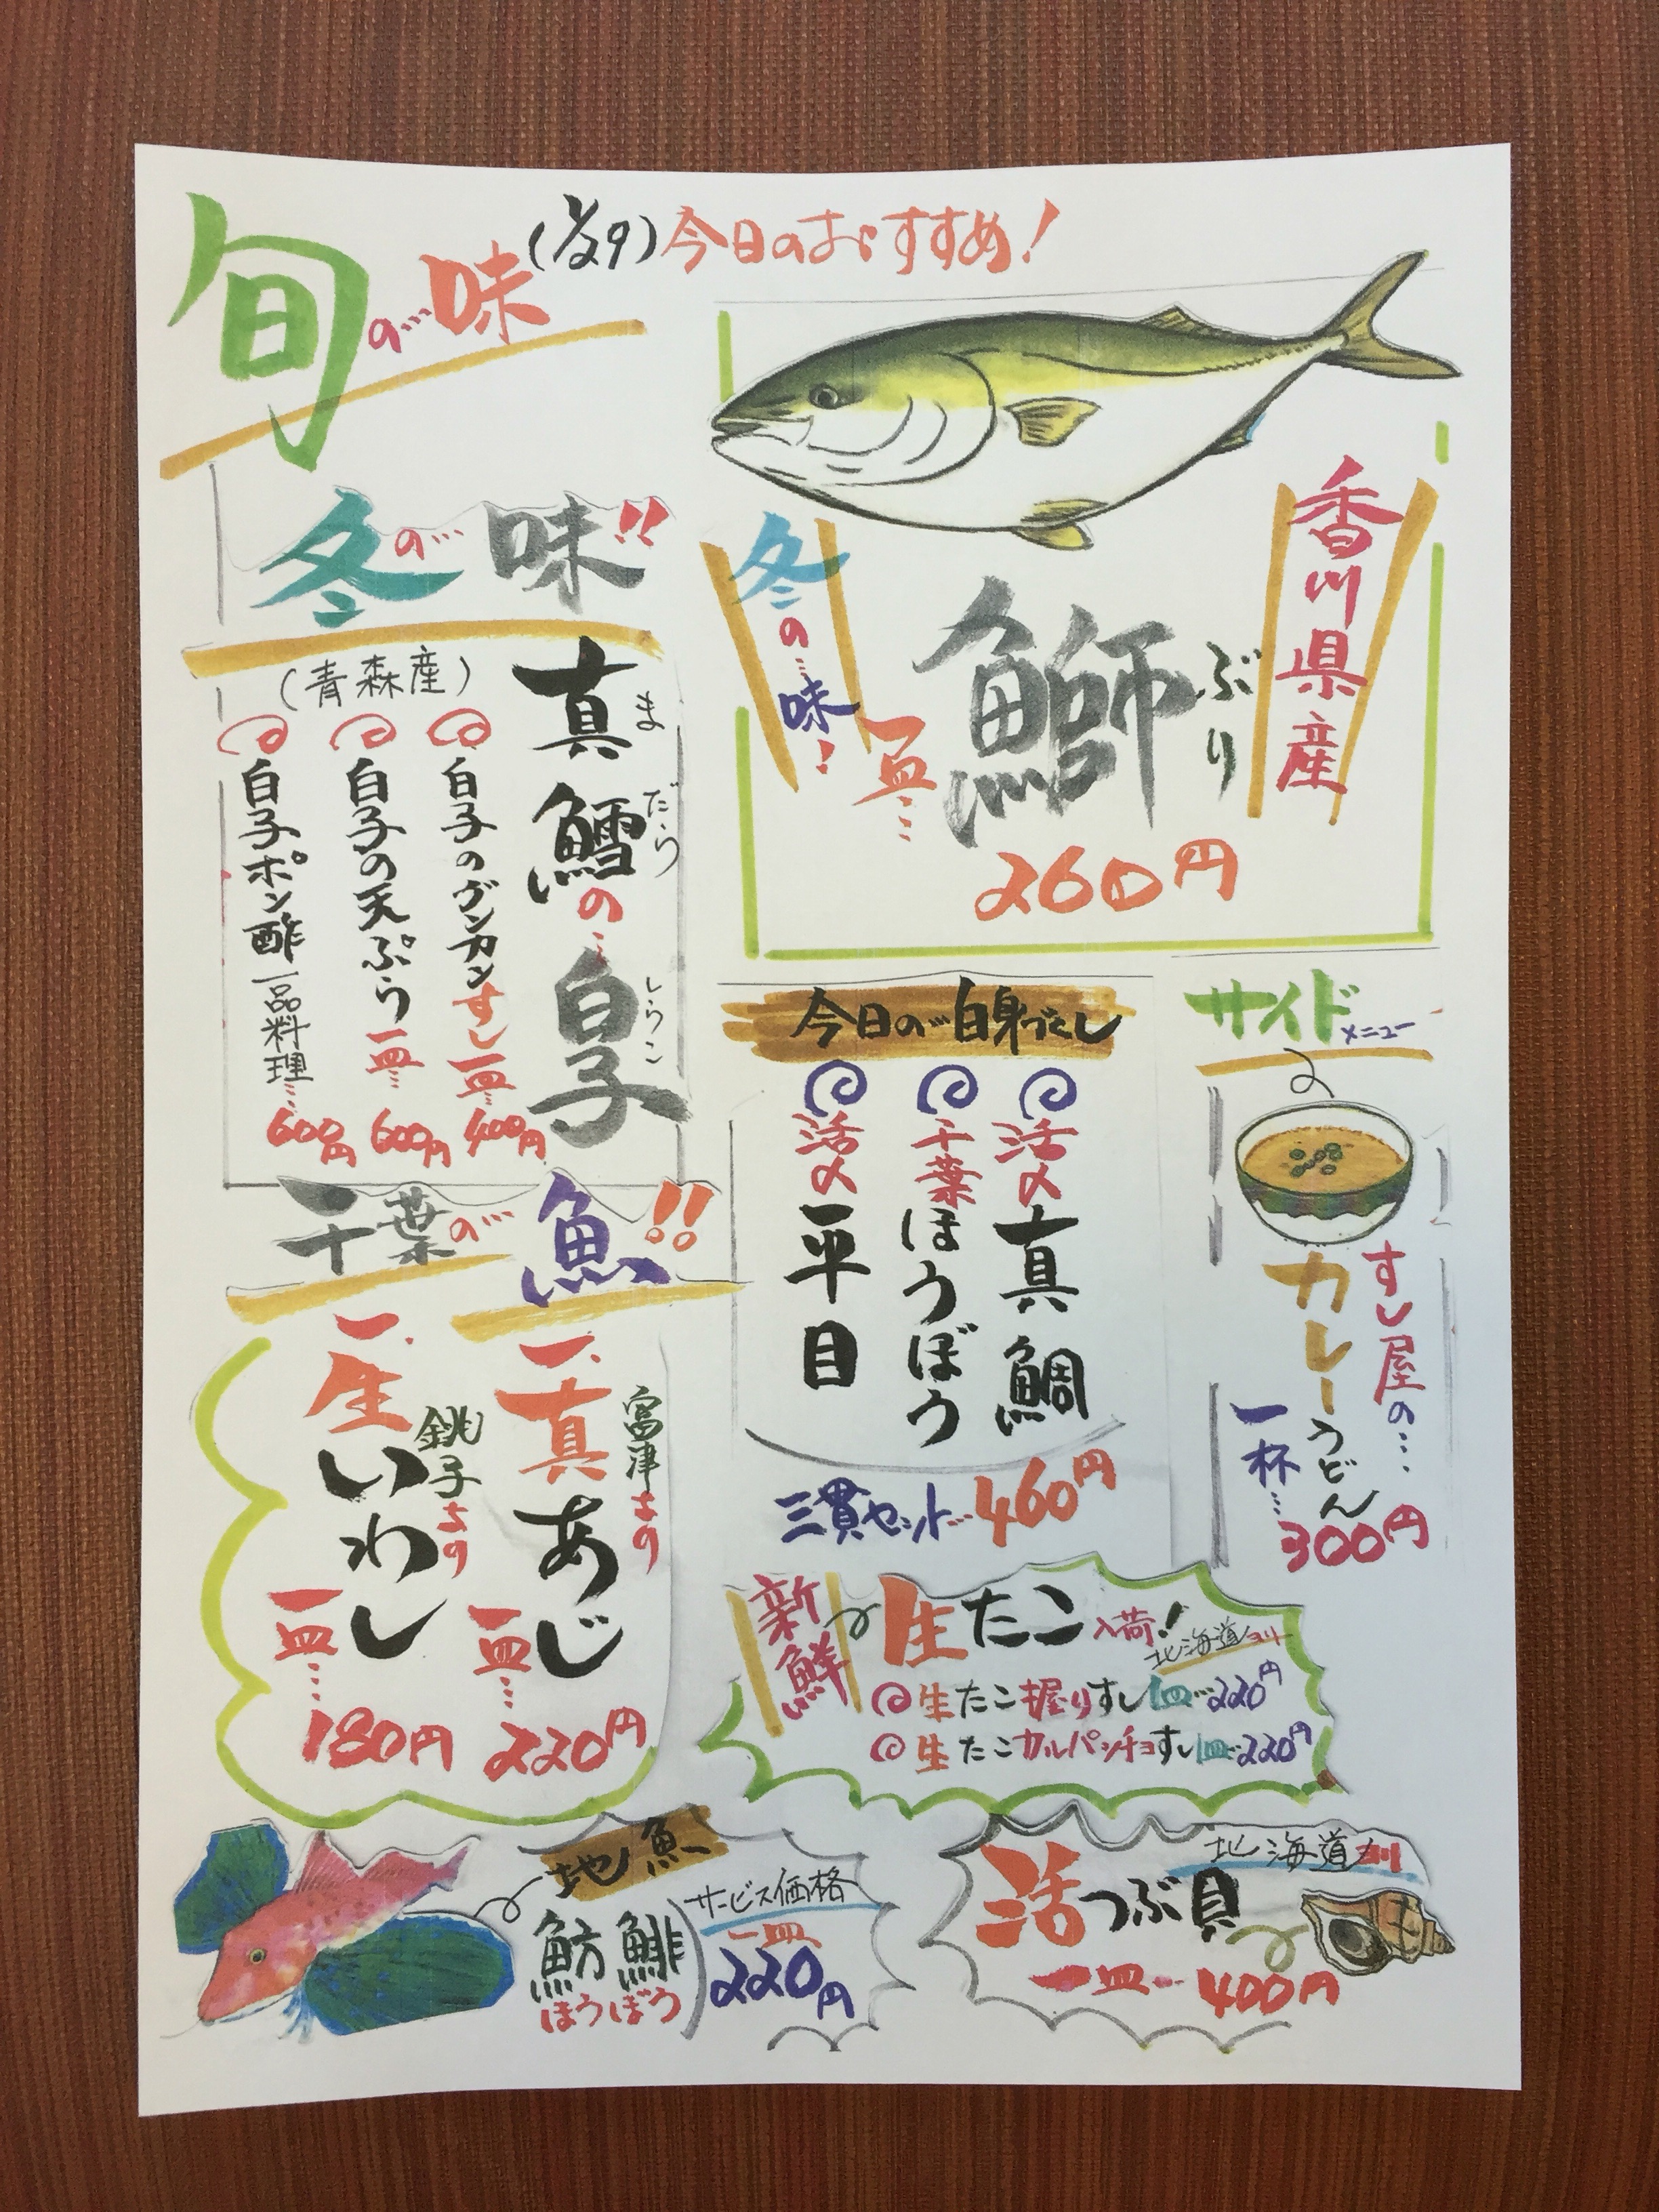 旬の味
(1/29)今日のおすすめ!
香川県産
鰤
ぶり
冬の味!
一皿…
260円
冬の味!!
真鱈の白子
まだら
しらこ
(青森産)
白子のグンカンすし一皿…400円
白子の天ぷら一皿…600円
白子ポン酢一品料理…600円
今日の白身づくし
活〆真鯛
千葉ほうぼう
活〆平目
三貫セット…460円
サイドメニュー
すし屋の…
カレーうどん
一杯…300円
千葉の魚!!
一、真あじ
富津産の
一皿…220円
一、生いわし
銚子産の
一皿…180円
新鮮
生たこ入荷!
北海道ヨリ
生たこ握りすし一皿…220円
生たこカルパッチョすし一皿…220円
地魚
魴鯡
ほうぼう
サービス価格
一皿
220円
北海道ヨリ
活つぶ貝
一皿…400円